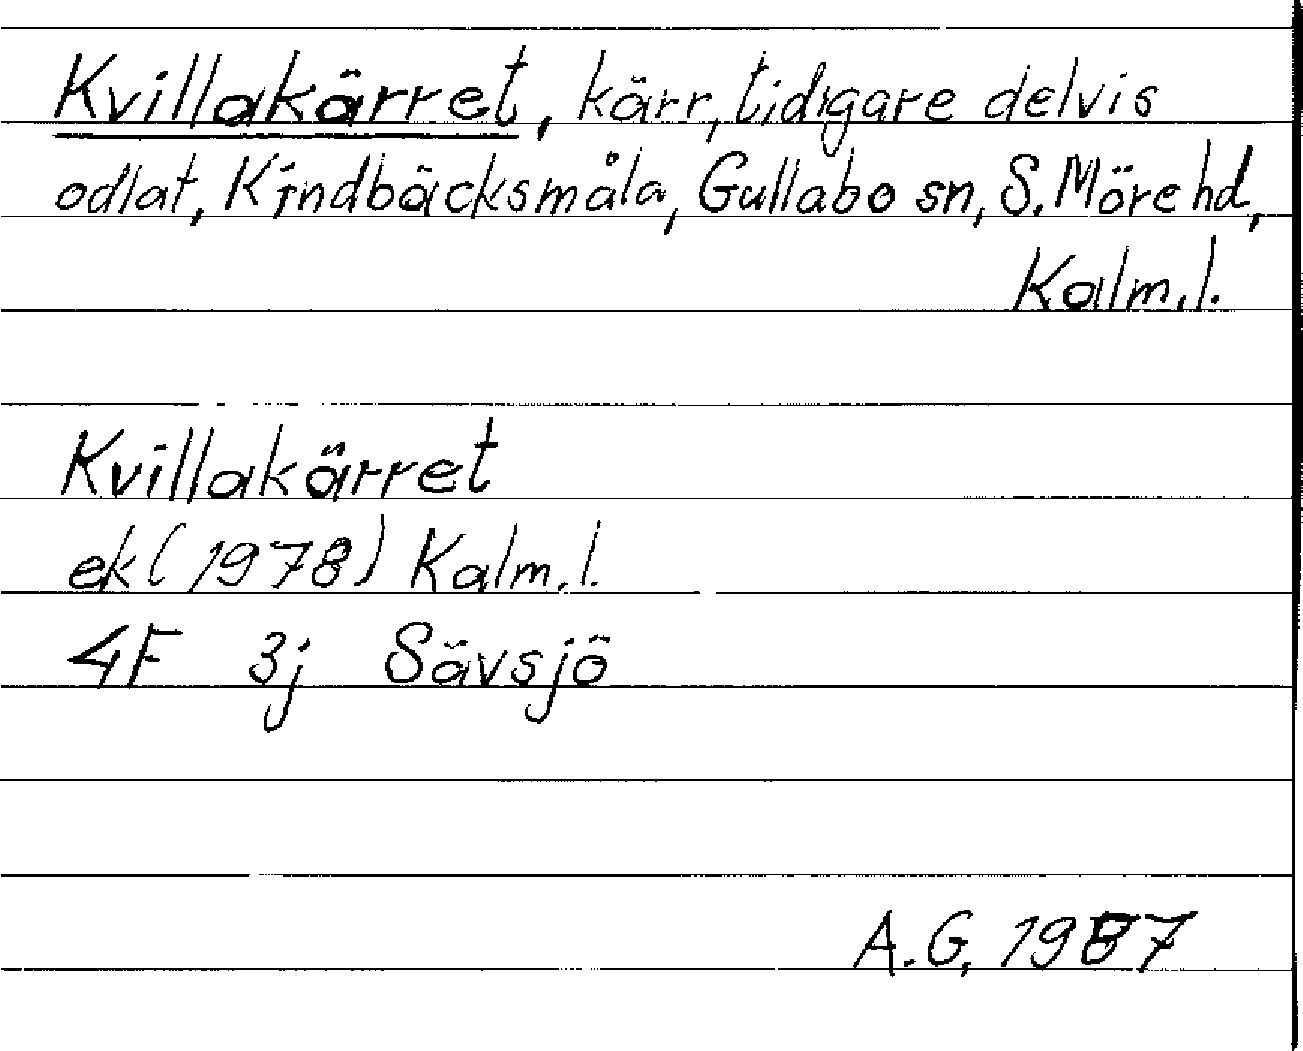 Kvillakärret, kärr, tidigare delvis
odlat, Kindbäcksmåla, Gullabo sn, S. Möre hd,
Kalm. l.
Kvillakärret
ek (1978) Kalm. l.
4F 3j Sävsjö
A.G. 1987